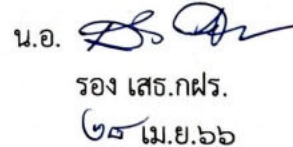 น.อ.
รอง เสธ.กฝร.
๒๘ เม.ย.๖๖